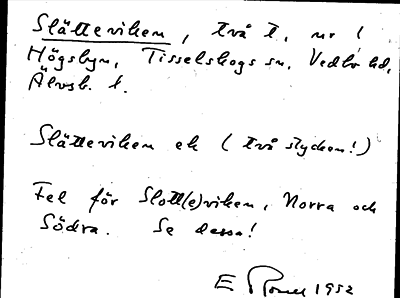 Slätteviken, två t. nr 1
Högsbyn, Tisselskogs sn, Vedbo hd,
Älvsb. l.
Slätteviken ek (två stycken!)
Fel för Slott(e)viken, Norra och
Södra. Se dessa!
E 1952